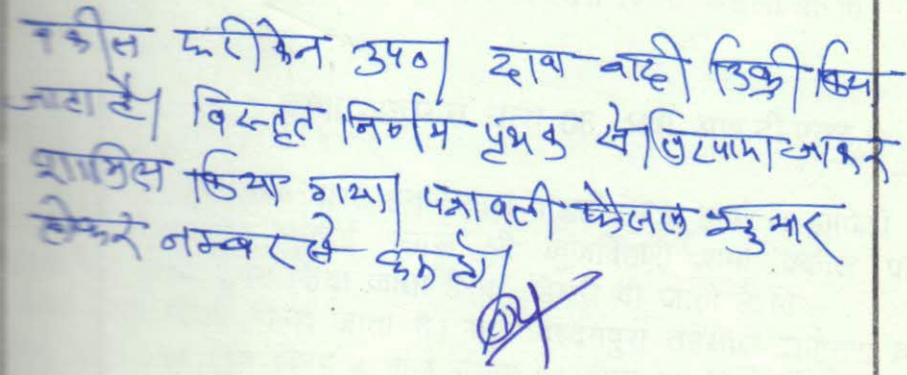 वकील फरीकैन उप०। दावा वादी डिक्री किया
जाता है। विस्तृत निर्णय पृथक से लिखाया जाकर
शामिल किया गया। पत्रावली फैसल शुमार
होकर नम्बर से कम हो।